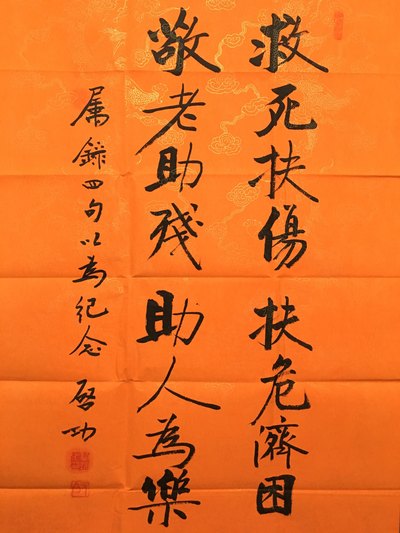 救死扶傷 扶危濟困
敬老助残 助人為樂
属錄四句以為纪念 啓功